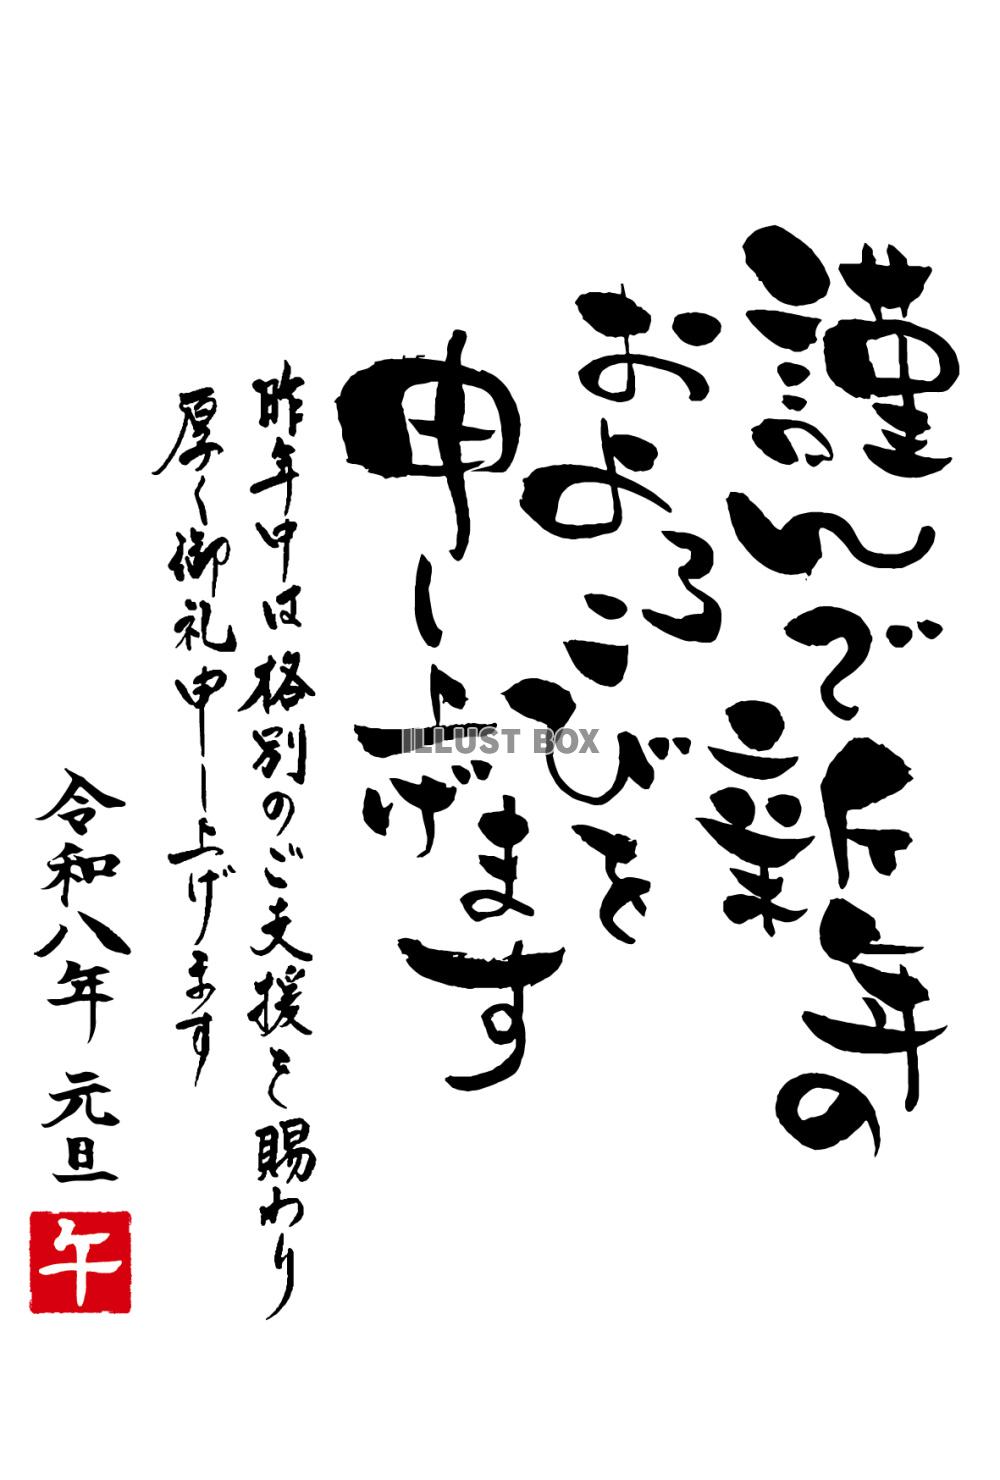 謹んで新年の
およろこびを
申し上げます
昨年中は格別のご支援を賜わり
厚く御礼申し上げます
令和八年 元旦
午
ILLUST BOX